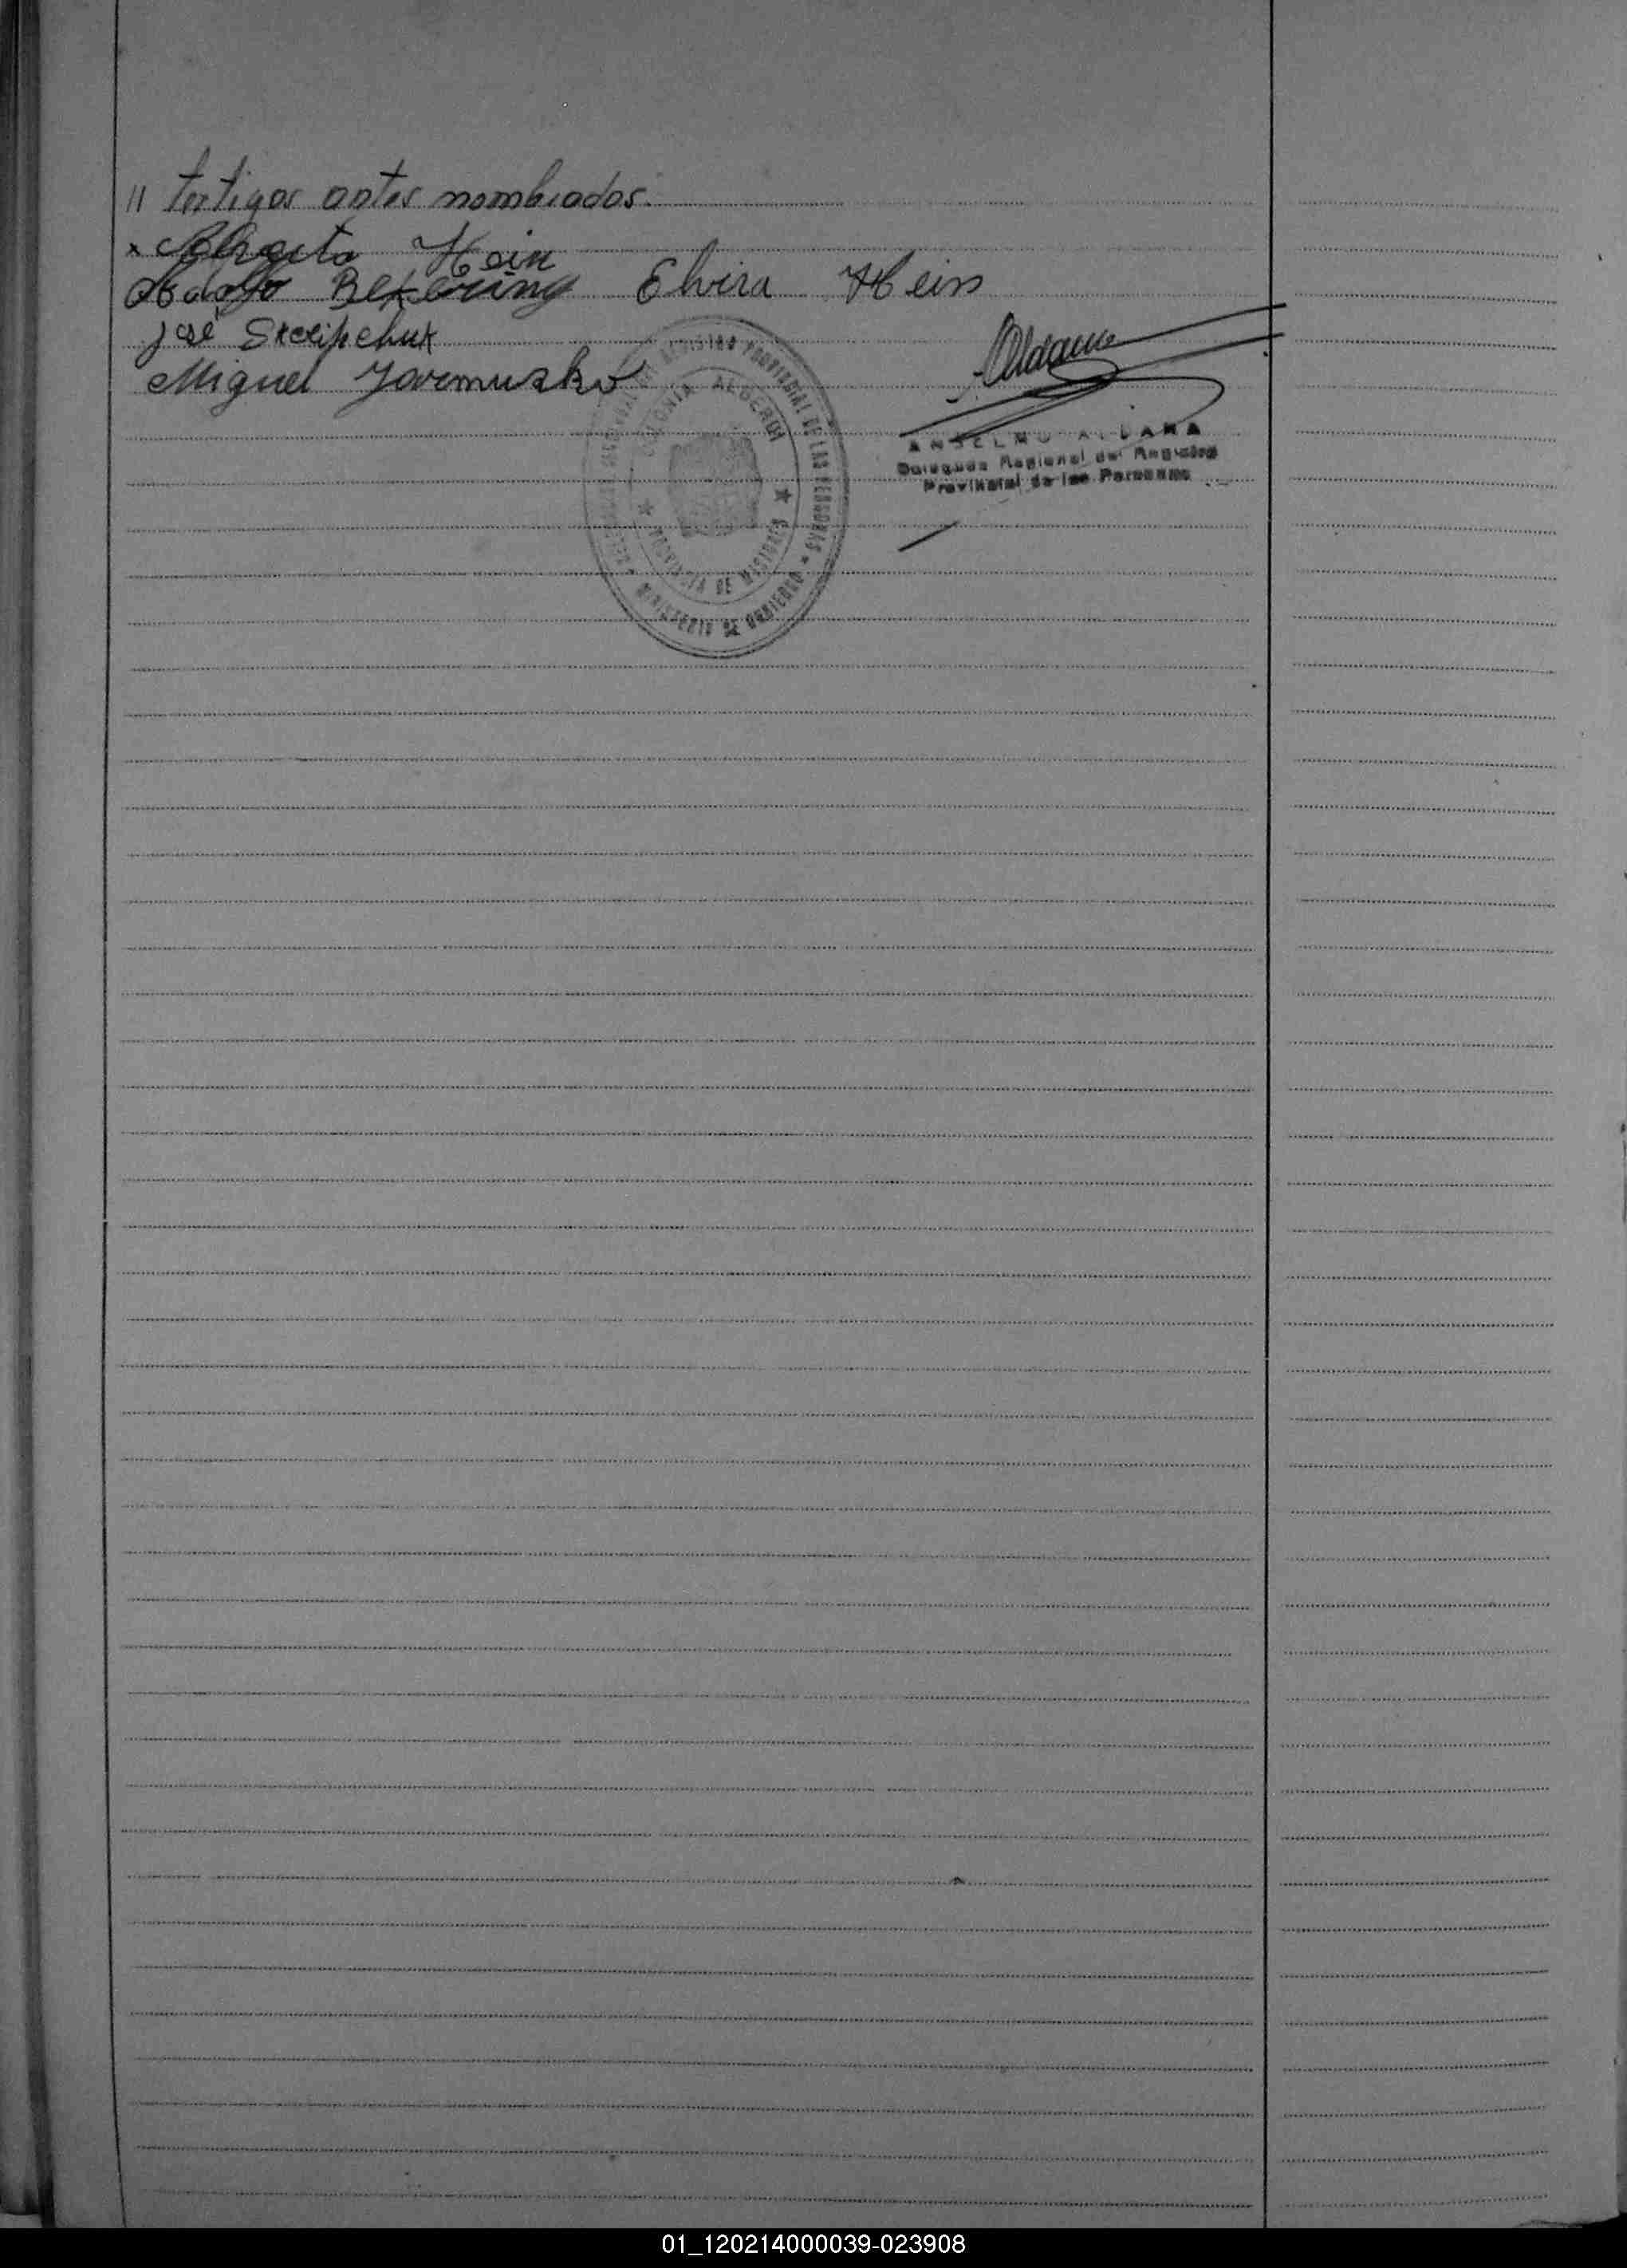 // testigos antes nombrados.
Hein
Adolfo Elvira Hein
José Stecipchuk
Miguel Jaremuzko
Aldana
DELEGACION REGIONAL DEL REGISTRO PROVINCIAL DE LAS PERSONAS
COLONIA ALBERDI
PROVINCIA DE MISIONES
MINISTERIO DE GOBIERNO
ANSELMO ALDANA
Delegado Regional del Registro
Provincial de las Personas
01_120214000039-023908